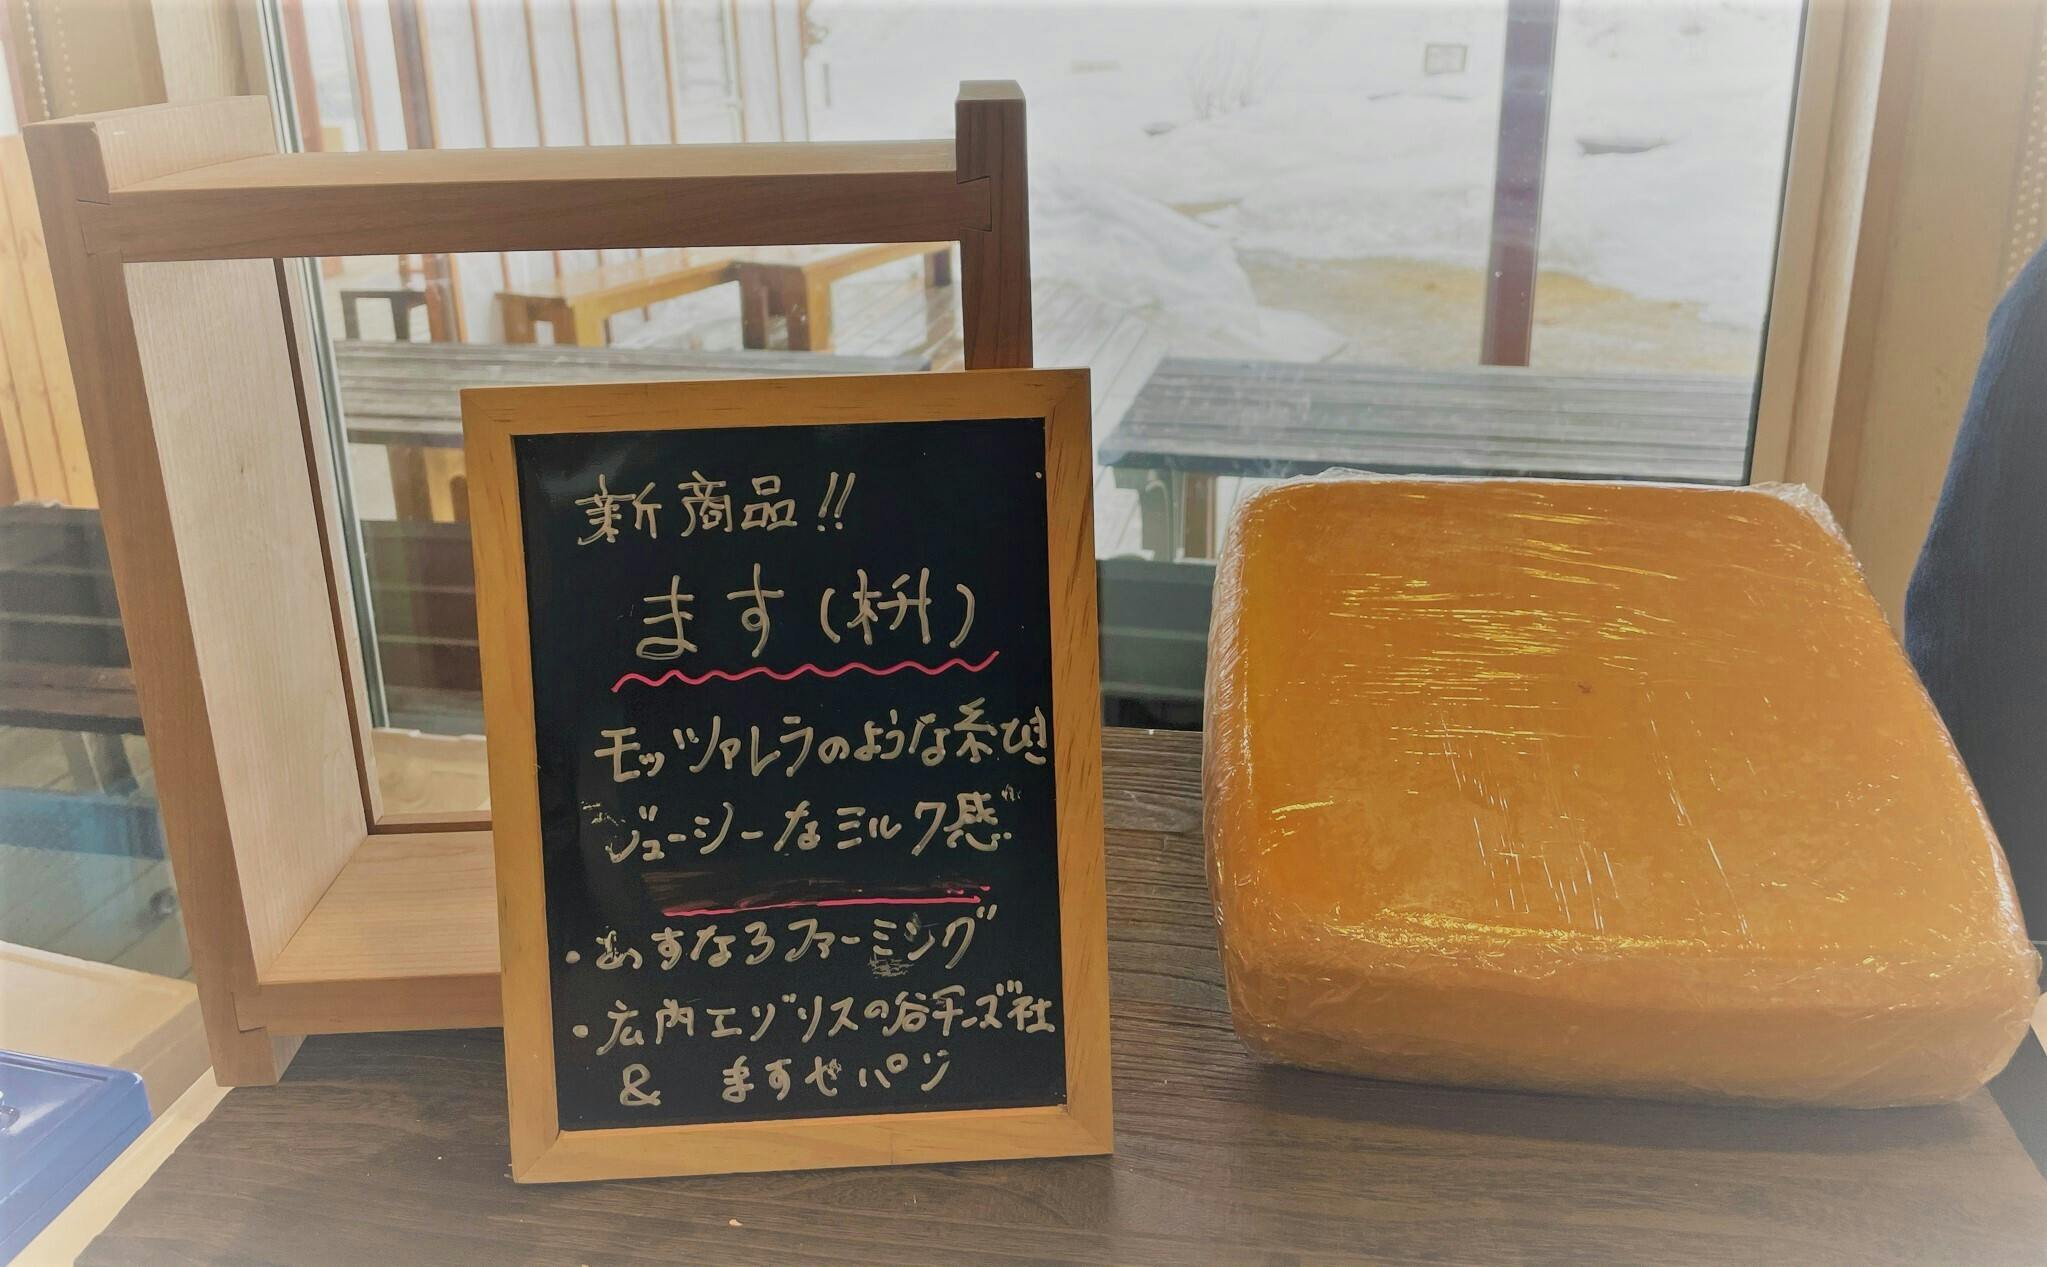 新商品!!
ます(枡)
モッツァレラのような糸ひき
ジューシーなミルク感
・あすなろファーミング
・広内エゾリスの谷チーズ社
& ますゼパン